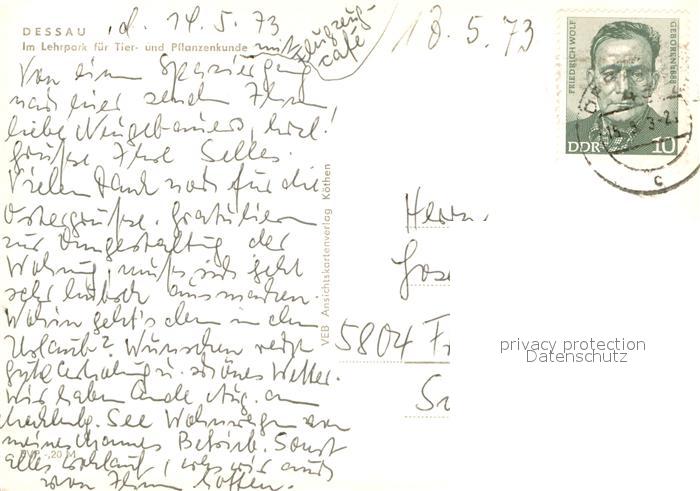 DESSAU, d. 14.5.73
Im Lehrpark für Tier- und Pflanzenkunde mit Flugzeug-
café
18.5.73
Von einem Spaziergang
nach hier senden Ihnen,
liebe Neugebauers, herzl.
Grüße Ihre Selles.
Vielen Dank noch für die
Ostergrüße. Gratulieren
zur Umgestaltung der
Wohnung, muß sich jetzt
sehr hübsch ausmachen.
Wohin geht's denn in den
Urlaub? Wünschen recht
gute Erholung u. schönes Wetter.
Wir haben Ende Aug. am
See Wohnwagen von
meines Mannes Betrieb. Sonst
alles wohlauf, was wir auch
von Ihnen hoffen.
EVP -,20 M
VEB Ansichtskartenverlag Köthen
FRIEDRICH WOLF
GEBOREN 1888
DDR 10
c
Herrn
5804
privacy protection
Datenschutz